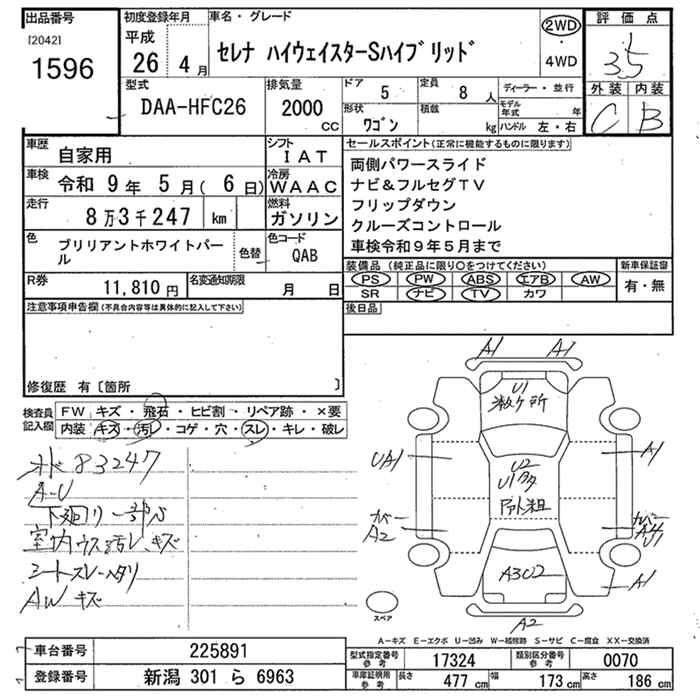 出品番号
[2042]
1596
初度登録年月
平成
26年 4月
車名・グレード
セレナ ハイウェイスターSハイブリッド
2WD
・
4WD
評価点
3.5
外装 内装
C B
型式
DAA-HFC26
排気量
2000
CC
ドア 5
定員 8人
形状 ワゴン
積載 kg
ディーラー・並行
モデル年式 年
ハンドル 左・右
車歴 自家用
シフト IAT
車検 令和 9年 5月( 6日)
冷房 WAAC
走行 8万3千247 km
燃料 ガソリン
色 ブリリアントホワイトパール
色替
色コード QAB
R券 11,810円
名変通知期限 月 日
セールスポイント(正常に機能するものに限ります)
両側パワースライド
ナビ&フルセグTV
フリップダウン
クルーズコントロール
車検令和9年5月まで
装備品 (純正品に限り○をつけてください)
新車保証書
PS PW ABS エアB AW
SR ナビ TV カワ
有・無
後日品
注意事項申告欄(不具合内容等は具体的に記入して下さい)
修復歴 有〔箇所 〕
検査員記入欄
FW キズ・飛石・ヒビ割・リペア跡・×要
内装 キズ・汚レ・コゲ・穴・スレ・キレ・破レ
83247
A-U
下廻り一部サビ
室内ウス汚レ、キズ
シートスレ・ヘタリ
AW キズ
A1 A1
U1
数ヶ所
UA1
U2
A1
カバー
A2
カバー
A1
A3U2
A2
スペア
A-キズ E-エクボ U-凹み W-補修跡 S-サビ C-腐食 XX-交換済
車台番号 225891
登録番号 新潟 301 ら 6963
型式指定番号 参考 17324
類別区分番号 参考 0070
車庫証明用 参考
長さ 477 cm
幅 173 cm
高さ 186 cm